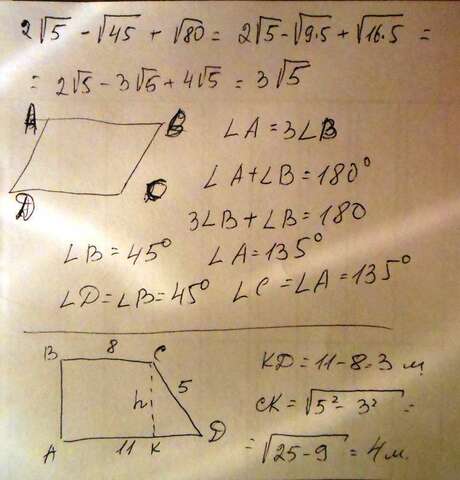 2√5 - √45 + √80 = 2√5 - √9·5 + √16·5 =
= 2√5 - 3√5 + 4√5 = 3√5
A B
D C
∠A = 3∠B
∠A + ∠B = 180°
3∠B + ∠B = 180
∠B = 45° ∠A = 135°
∠D = ∠B = 45° ∠C = ∠A = 135°
B 8 C
h 5
A 11 K D
KD = 11 - 8 = 3 м
CK = √5² - 3² =
= √25 - 9 = 4 м.